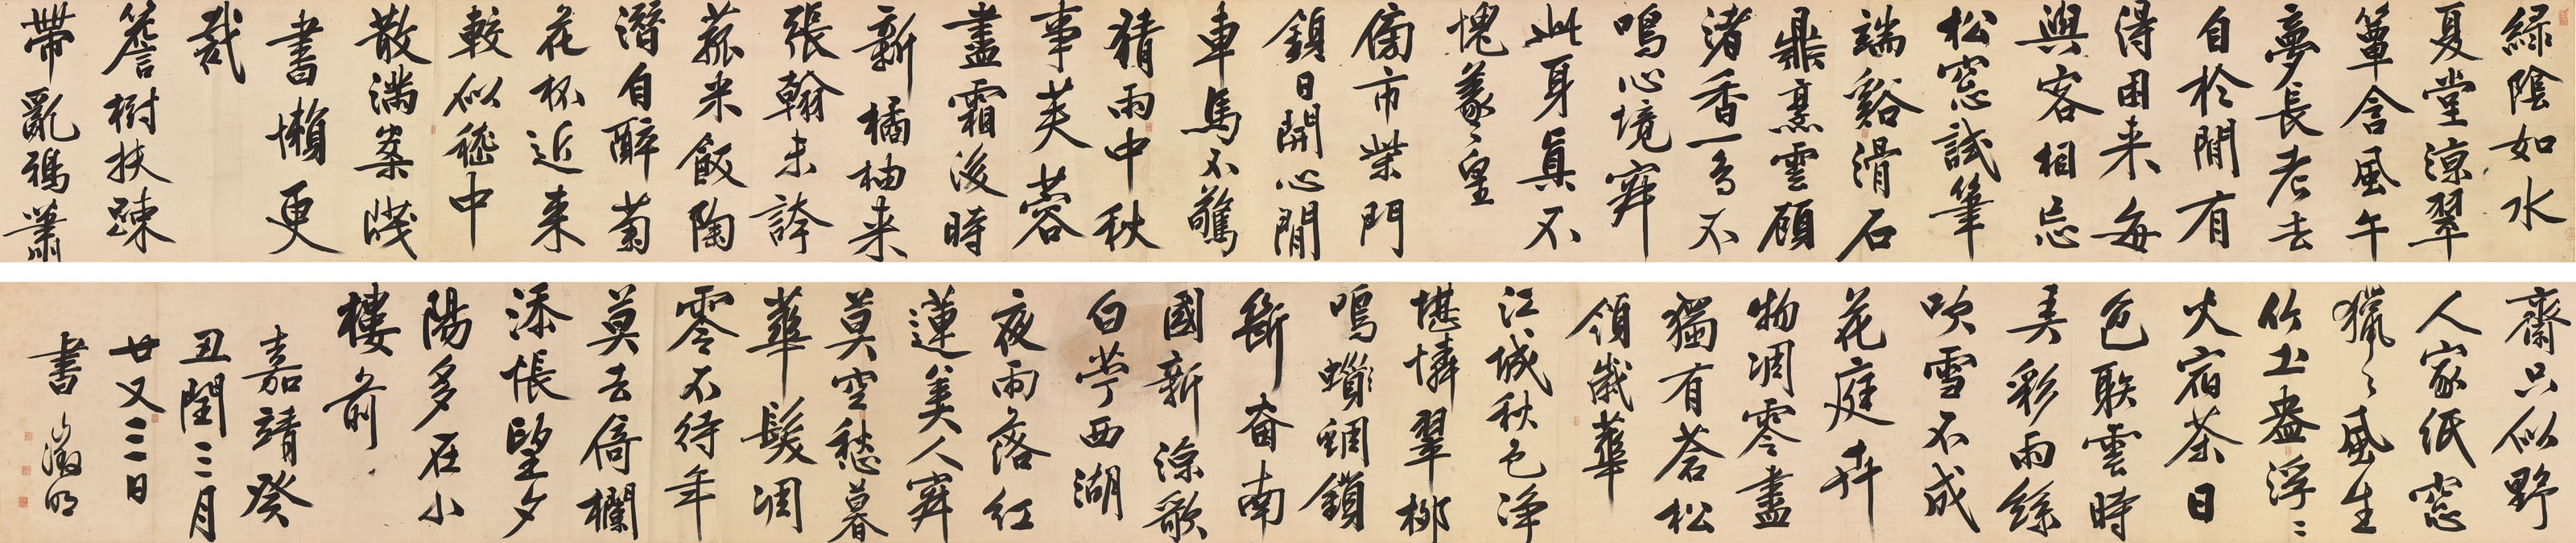 綠陰如水
夏堂涼翠
簟含風午
夢長老去
自於閒有
得困來每
與客相忘
松窓試筆
端谿滑石
鼎烹雲顧
渚香一鳥不
鳴心境寂
此身真不
愧羲〻皇
傍市柴門
鎖日開心閒
車馬不驚
猜雨中秋
事芙蓉
盡霜後時
新橘柚來
張翰未誇
菰米飯陶
潛自醉菊
花杯近來
較似嵇中
散滿案牋
書懶更
裁
簷樹扶疎
帶亂鴉蕭
齋只似野
人家紙窓
獵〻風生
竹土盎浮〻
火宿茶日
色聯雲時
弄彩雨絲
吹雪不成
花庭卉
物凋零盡
獨有蒼松
領歲華
江城秋色淨
堪憐翠柳
鳴蜩鎖
斷南
國新涼歌
白苧西湖
夜雨落紅
蓮美人寂
莫空愁暮
華髮凋
零不待年
莫去倚欄
添悵望夕
陽多在小
樓前
嘉靖癸
丑閏三月
廿又三日
書 徵明